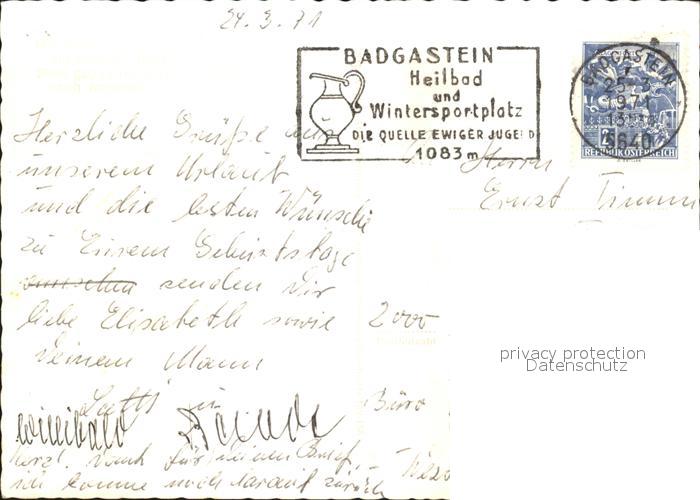 24.3.71
BADGASTEIN
Heilbad
und
Wintersportplatz
DIE QUELLE EWIGER JUGEND
1083 m
BADGASTEIN
25.-3.
1971
5640
REPUBLIK ÖSTERREICH
Herrn
Ernst Timm
Herzliche Grüße aus
unserem Urlaub
und die besten Wünsche
zu Eurem Geburtstage
wünschen senden Dir
liebe Elisabeth sowie
Deinem Mann
2000
Büro
Willibald
herzl. Dank für deinen Brief,
ich komme noch darauf zurück
privacy protection
Datenschutz